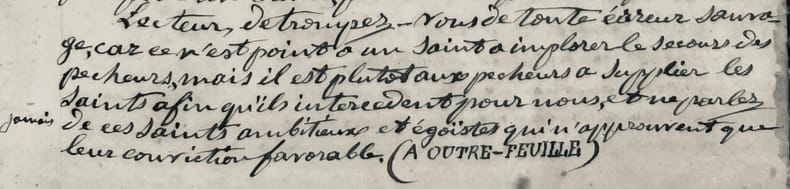 Lecteur, detrompez-vous de toute erreur sauva-
ge, car ce n'est point a un saint a implorer le secours des
pecheurs, mais il est plutot aux pecheurs a supplier les
saints afin qu'ils intercedent pour nous, et ne parlez
jamais de ces saints ambitieux et égoïstes qui n'approuvent que
leur conviction favorable. (A OUTRE-FEUILLE)